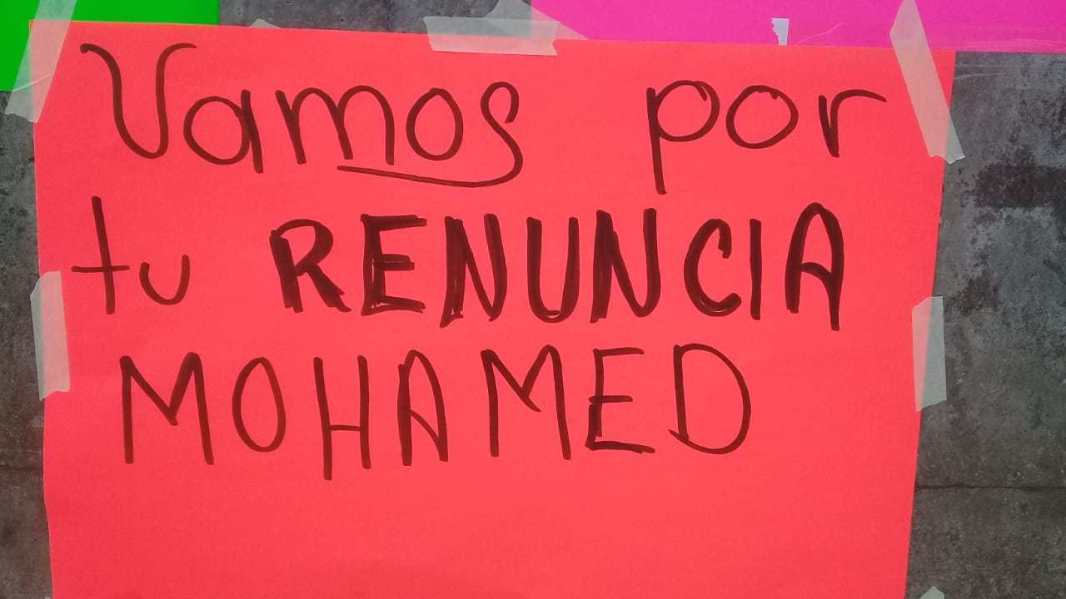 Vamos por
tu RENUNCIA
MOHAMED